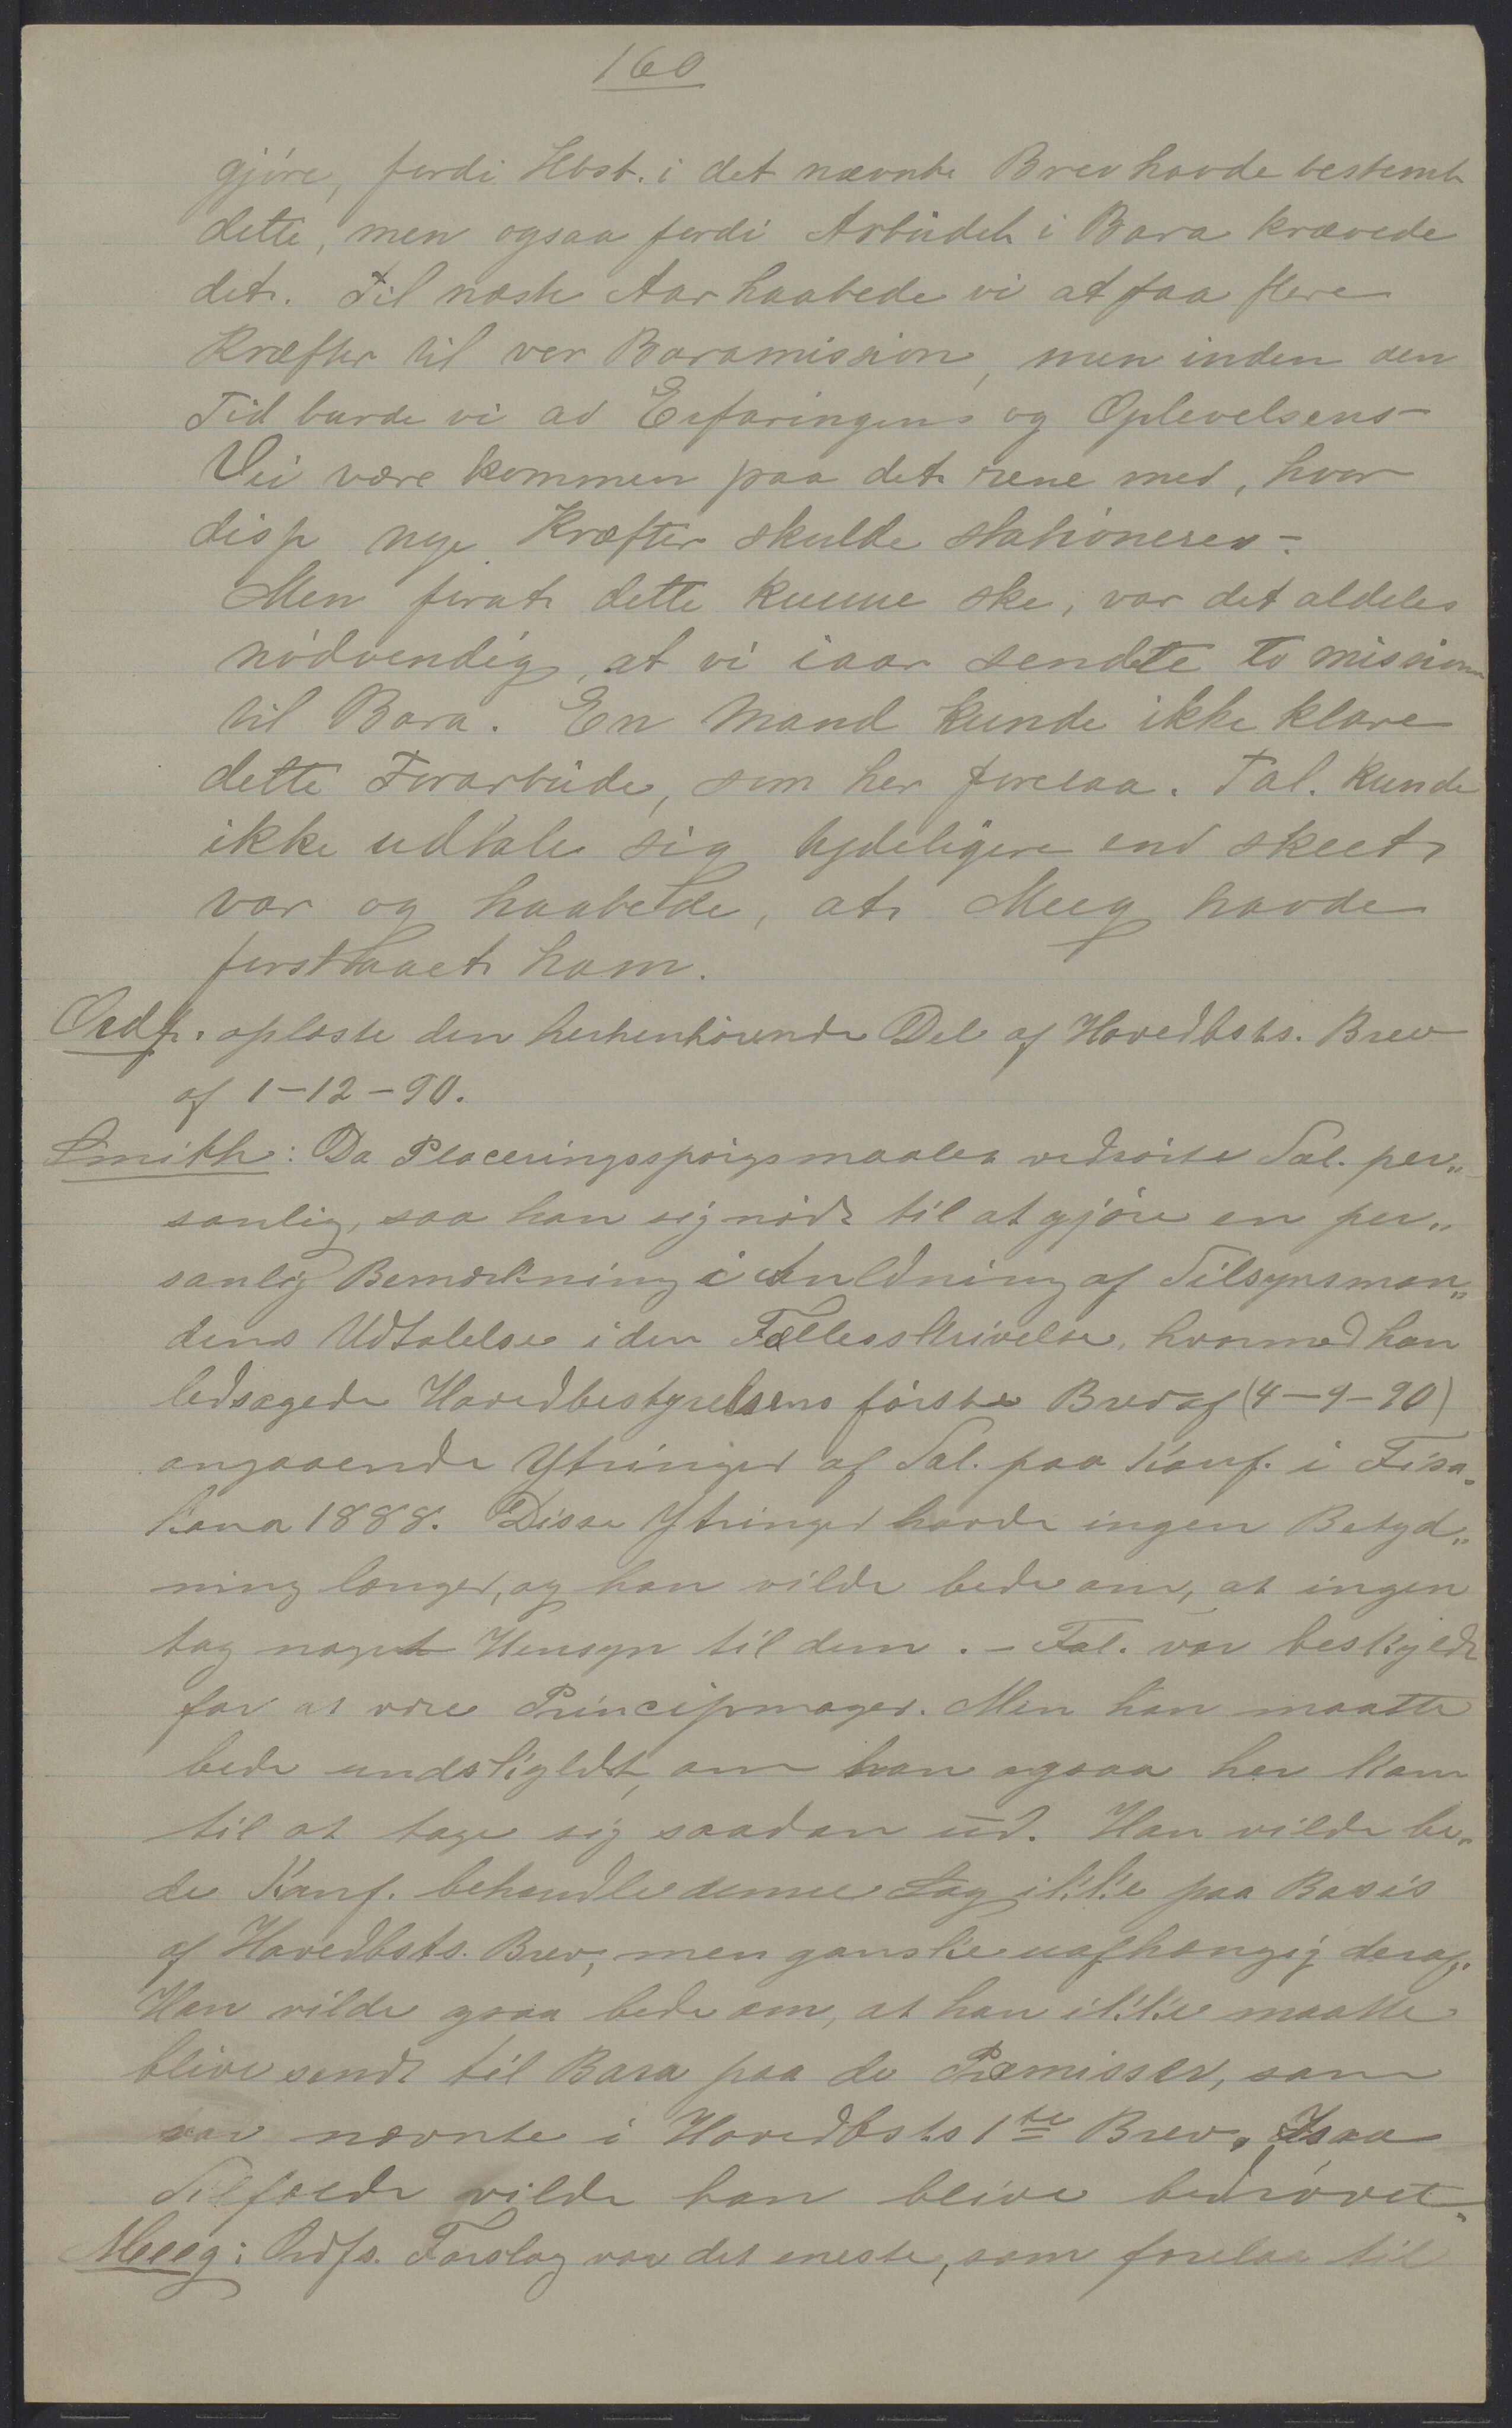 160
gjöre, fordi Hbst. i det nævnte Brev havde bestemt
dette, men ogsaa fordi Arbeidet i Bara krævede
det. Til næste Aar haabede vi at faa flere
Kræfter til vor Baramission, men inden den
Tid burde vi ad Erfaringens og Oplevelsens
Vei være kommen paa det rene med, hvor
disse nye Kræfter skulde stationeres.
Men forat dette kunne ske, var det aldeles
nödvendig, at vi iaar sendte to mission
til Bara. En Mand kunde ikke klare
dette Forarbeide, som her forelaa. Tal. kunde
ikke udtale sig tydeligere end skeet
var og haabede, at Meeg havde
forstaaet ham.
Ordf. oplæste den herhenhörende Del af Hovedbsts. Brev
af 1-12-90.
Smith: Da Placeringsspörgsmaalet vedrörte Tal. per„
sonlig, saa han sig nödt til at gjöre en per„
sonlig Bemærkning i Anledning af Tilsynsman„
dens Udtalelse i den Fællesskrivelse, hvormed han
ledsagede Hovedbestyrelsens förste Brev af (4-9-90)
angaaende Ytringer af Tal. paa Konf. i Fisa„
kana 1888. Disse Ytringer havde ingen Betyd„
ning længer, og han vilde bede om, at ingen
tog noget Hensyn til dem. - Tal. var beskyldt
for at være Principmager. Men han maatte
bede undskyldt, om han ogsaa her kom
til at tage sig saadan ud. Han vilde be„
de Konf. behandle denne Sag ikke paa Basis
af Hovedbsts. Brev, men ganske uafhængig deraf.
Han vilde gsaa bede om, at han ikke maatte
blive sendt til Bara paa de Præmisser, som
var nævnte i Hovedbsts 1te Brev. I saa
Tilfælde vilde han blive bedrövet.
Meeg: Ordfs. Forslag var det eneste, som forelaa til